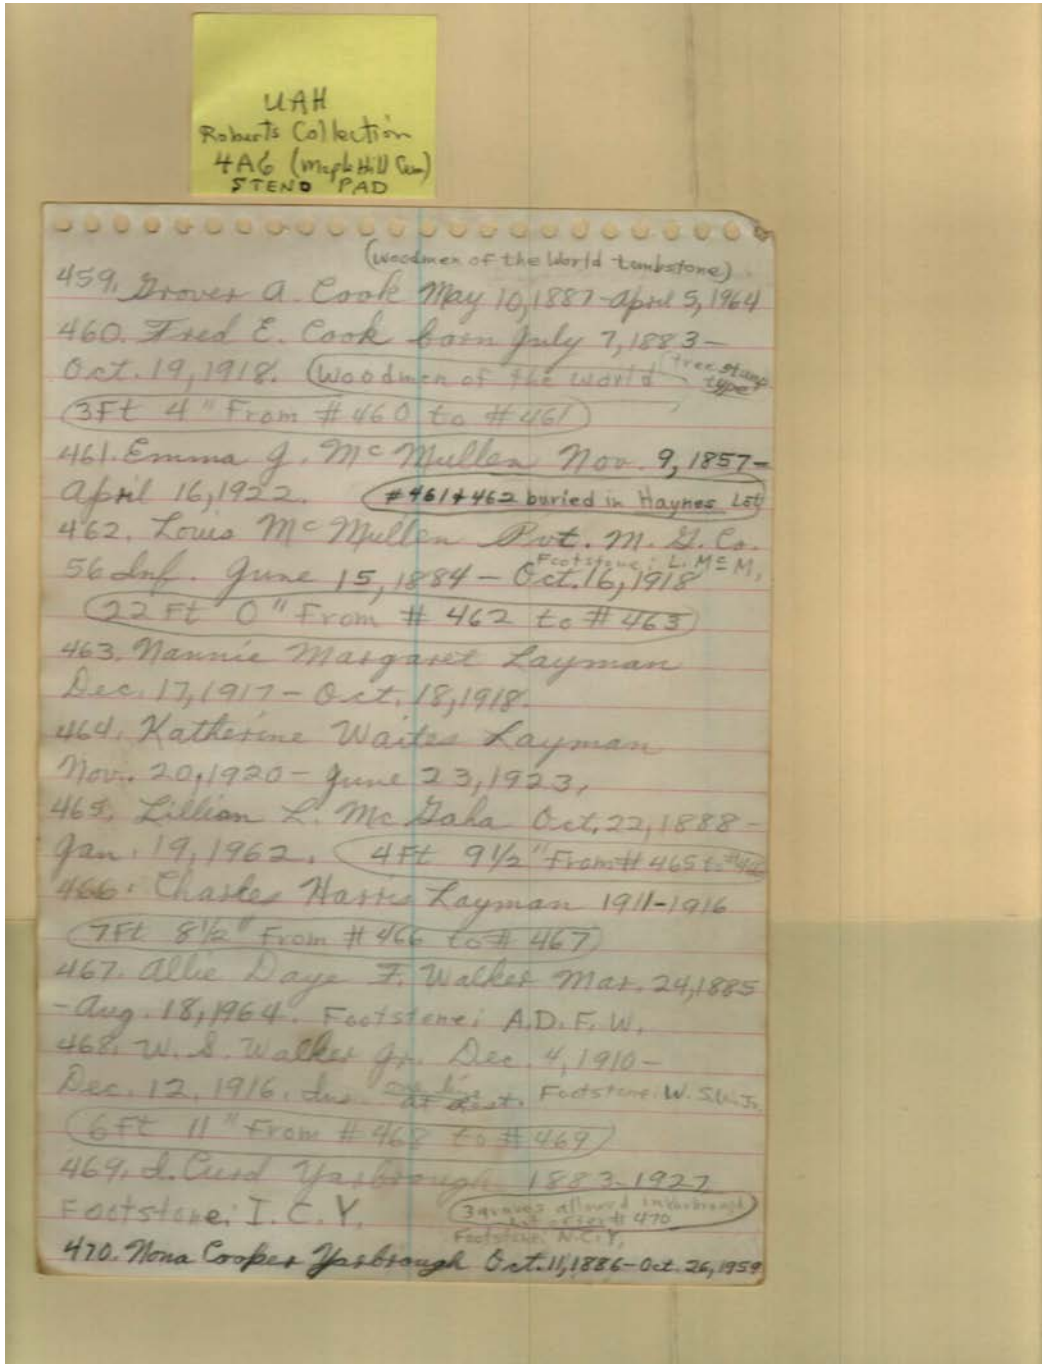 UAH
Roberts Collection
4A6 (Maple Hill Cem)
STENO PAD
(Woodmen of the World tombstone)
459. Grover A. Cook May 10, 1887-April 5, 1964
460. Fred E. Cook born July 7, 1883-
Oct. 19, 1918. (Woodmen of the World tree stump
type
3Ft 4" From #460 to #461
461. Emma J. McMullen Nov. 9, 1857-
April 16, 1922. #461+462 buried in Haynes Lot
462. Louis McMullen Pvt. M. G. Co.
Footstone: L. McM.
56 Inf. June 15, 1884 - Oct. 16, 1918
22 Ft 0" From # 462 to # 463
463. Nannie Margaret Layman
Dec. 17, 1917 - Oct. 18, 1918.
464. Katherine Waites Layman
Nov. 20, 1920 - June 23, 1923.
465. Lillian L. McGaha Oct. 22, 1888 -
Jan. 19, 1962. 4Ft 9 1/2" From # 465 to #466
466. Charles Harris Layman 1911-1916
7Ft 8 1/2" From # 466 to # 467
467. Allie Daye F. Walker Mar. 24, 1885
- Aug. 18, 1964. Footstone: A.D.F.W.
468. W. S. Walker Jr. Dec. 4, 1910 -
Dec. 12, 1916. Ins. one line at rest. Footstone: W.S.W. Jr.
6Ft 11" From # 468 to # 469
469. I. Curd Yarbrough 1883-1927
Footstone: I. C. Y.
3 graves allowed in Yarbrough
lot after # 470
Footstone: N.C.Y.
470. Nona Cooper Yarbrough Oct. 11, 1886-Oct. 26, 1959